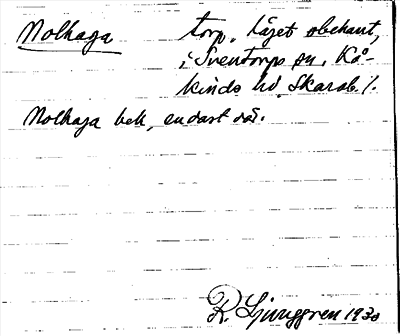 Molhaga torp. Läget obekant,
i Sventorps sn. Kå-
kinds hd. Skarab. l.
Molhaga bek, endast där.
R. Ljunggren 1930